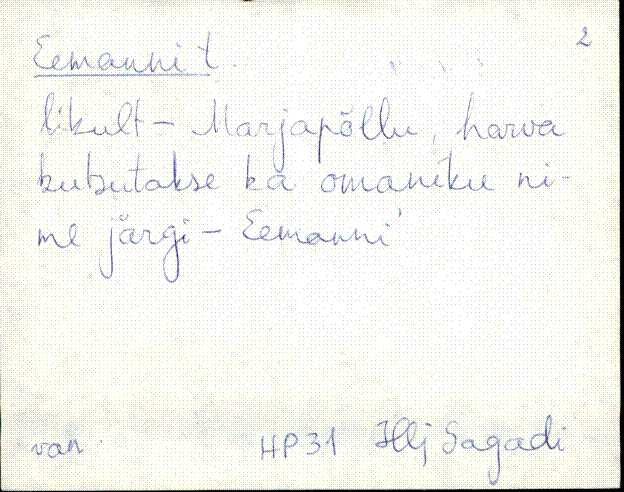 2
Eemanni t.
likult – Marjapõllu, harva
kutsutakse ka omaniku ni-
me järgi – Eemanni
van. HP31 Hlj Sagadi